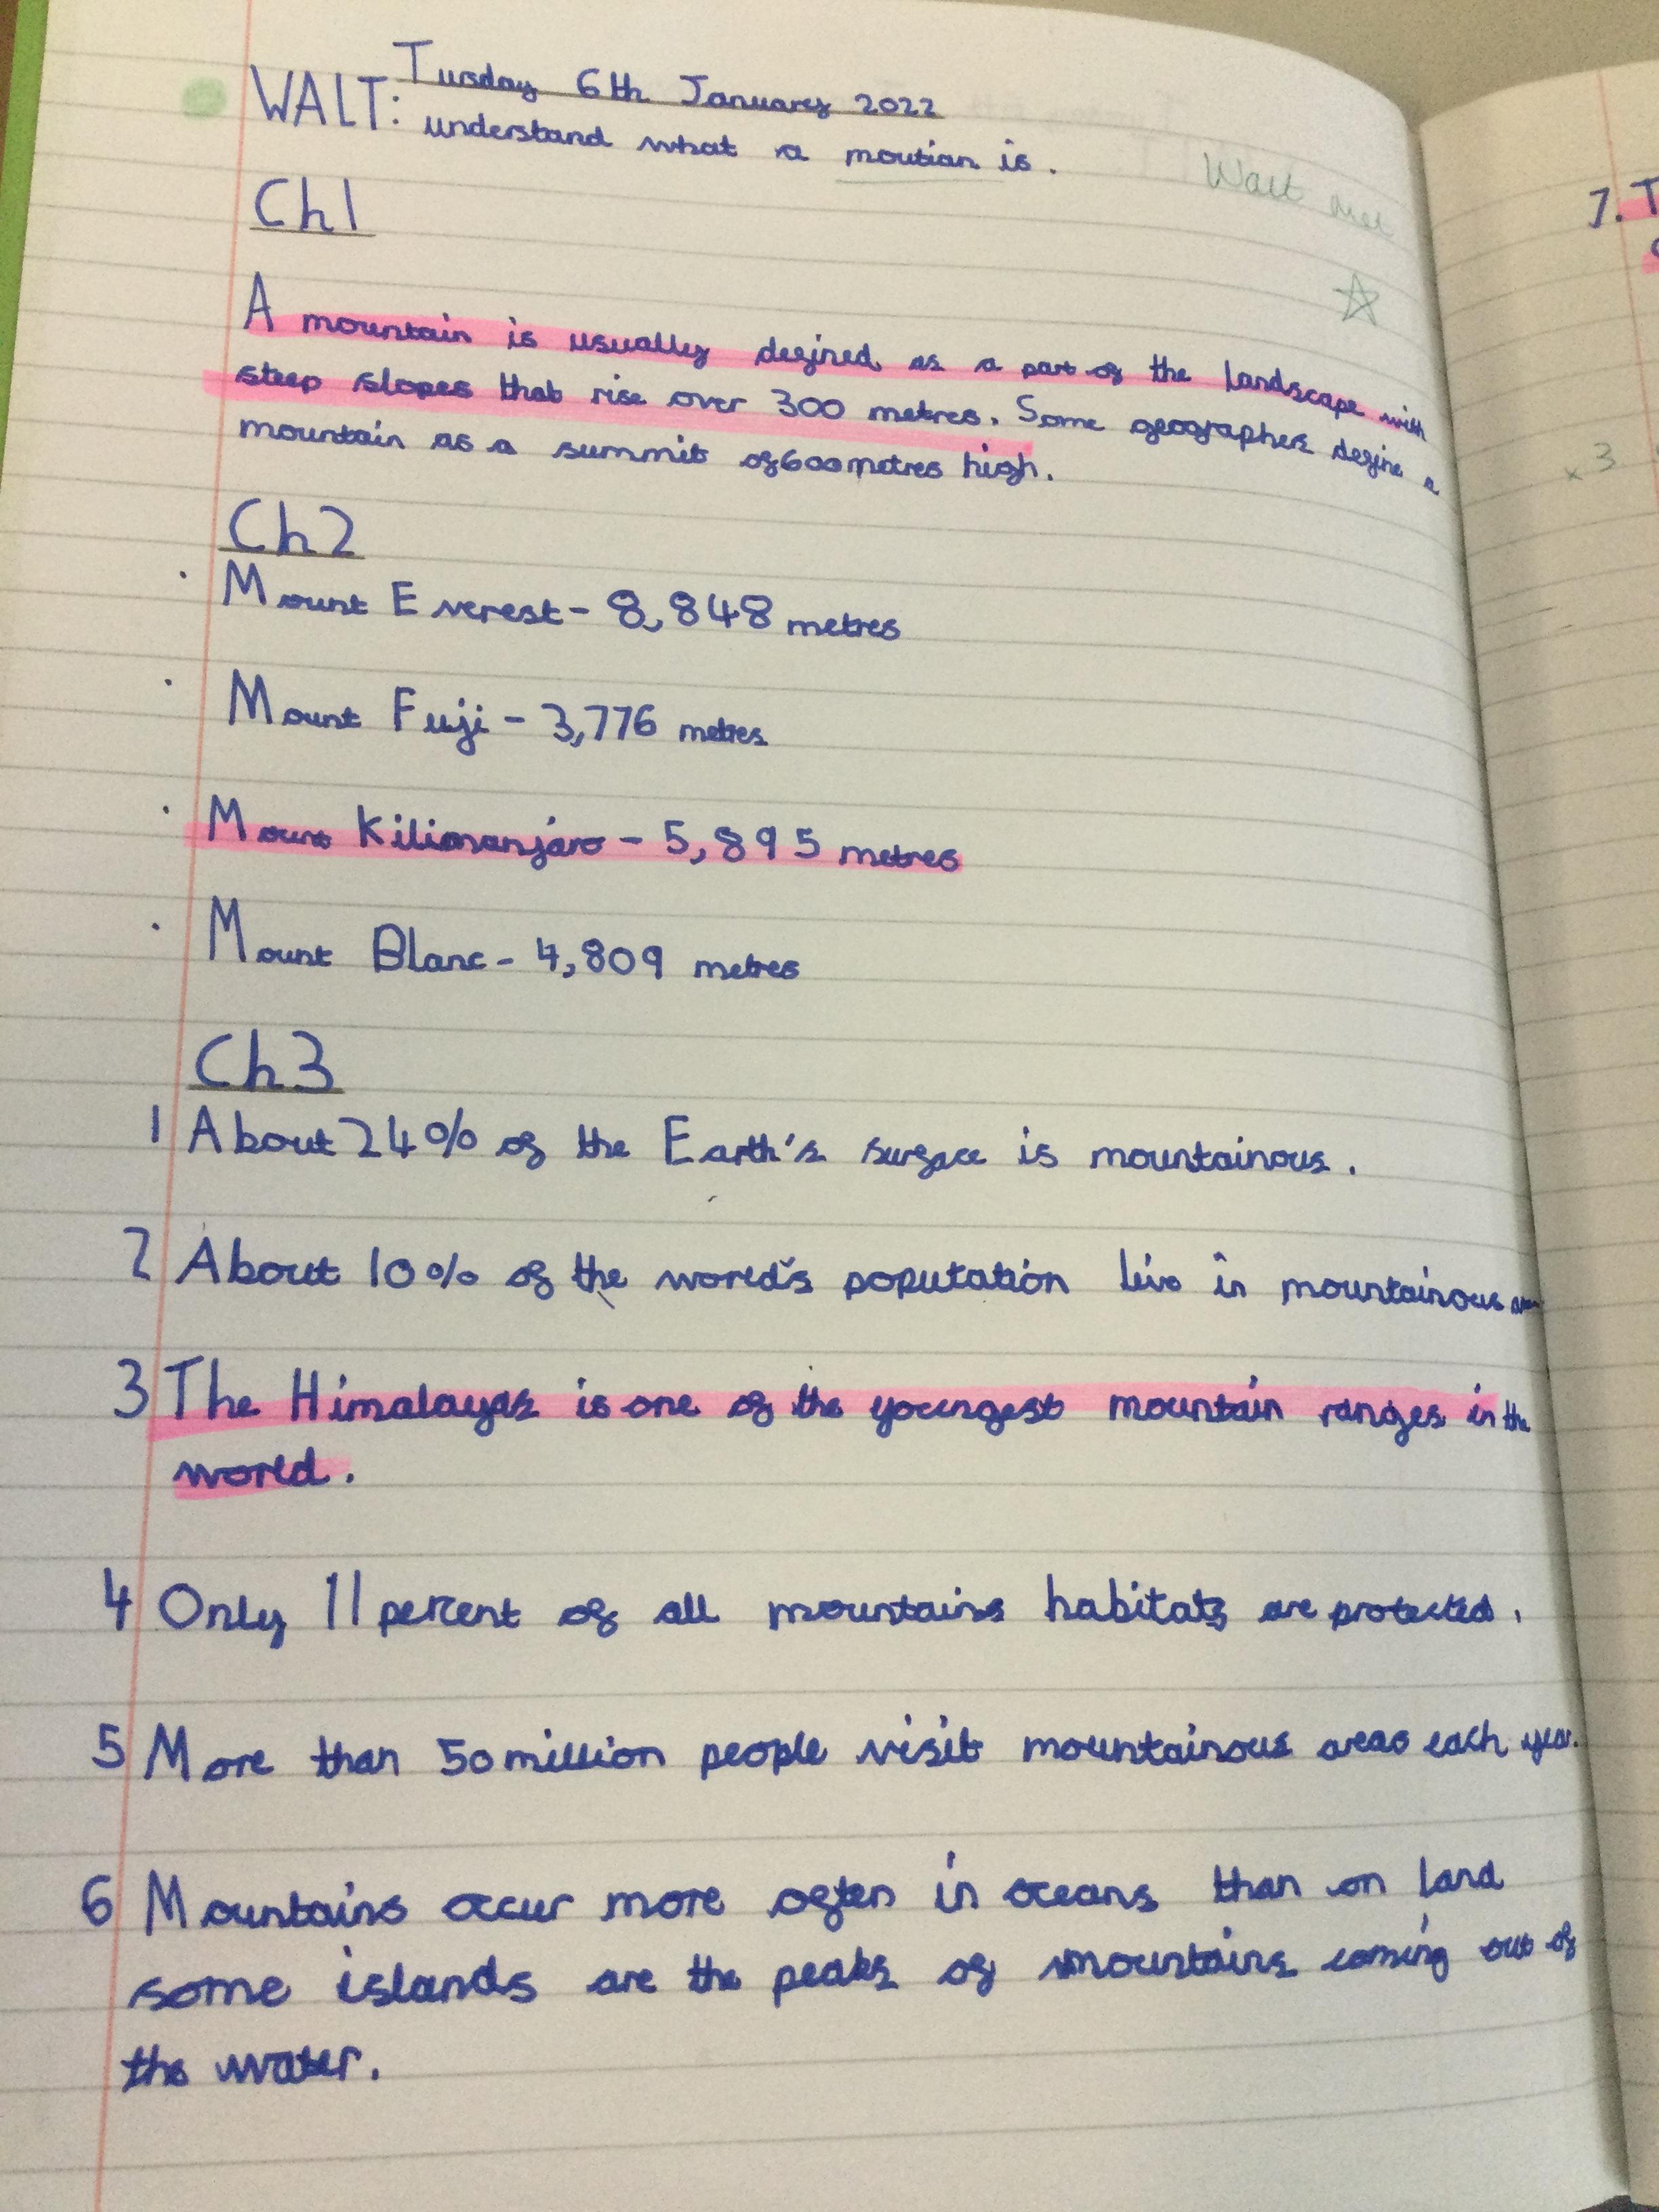 Tuesday 6th January 2022
WALT: understand what a moutian is.
Walt met
Ch1
A mountain is usually defined as a part of the landscape with
steep slopes that rise over 300 metres. Some geographers define a
mountain as a summit of 600 metres high.
Ch2
· Mount Everest - 8,848 metres
· Mount Fuji - 3,776 metres
· Mount Kilimanjaro - 5,895 metres
· Mount Blanc - 4,809 metres
Ch3
1 About 24% of the Earth's surface is mountainous.
2 About 10% of the world's poputation live in mountainous
3 The Himalayas is one of the youngest mountain ranges in the
world.
4 Only 11 percent of all mountains habitats are protected.
5 More than 50 million people visit mountainous areas each year.
6 Mountains occur more often in oceans than on land
some islands are the peaks of mountains coming out of
the water.
7. T
x 3